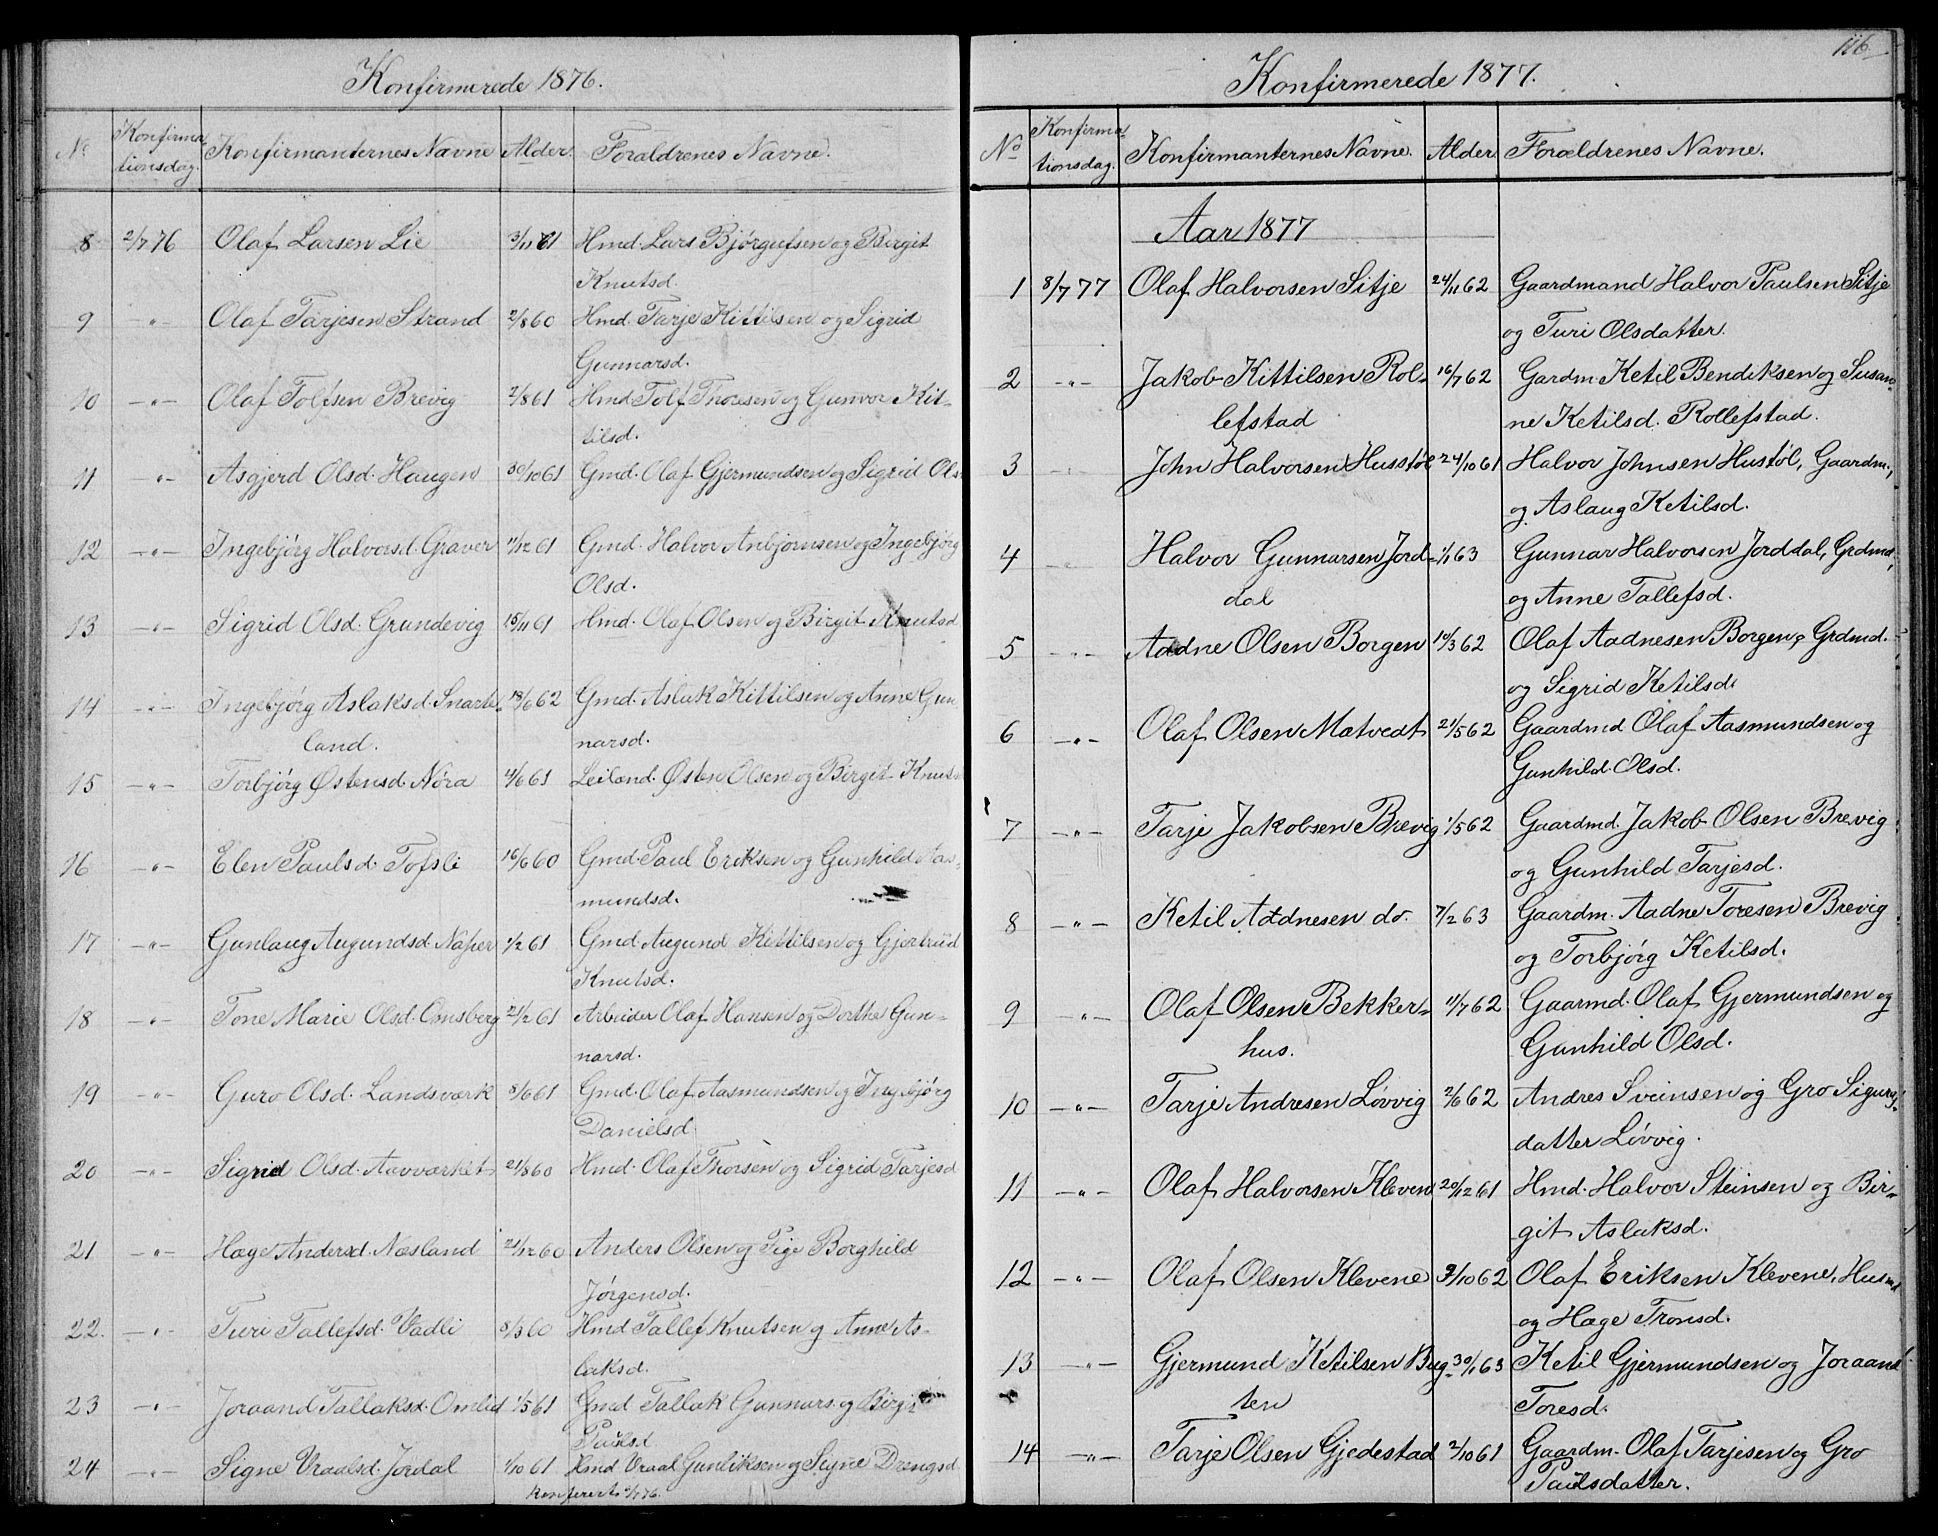 Konfirmerede 1876.
No Konfirma- tionsdag. Konfirmanternes Navne Alder. Forældrenes Navne.
8 2/7 76 Olaf Larsen Lie 3/11 61 Hmd. Lars Bjørgufsen og Birgit
Knutsd.
9 -"- Olaf Tarjesen Strand 2/8 60 Hmd. Tarje Kittilsen og Sigrid
Gunnarsd.
10 -"- Olaf Tolfsen Brevig 2/8 61 Hmd Tolf Thoresen og Gunvor Kit-
tilsd.
11 -"- Asgjerd Olsd. Haugen 30/10 61 Gmd. Olaf Gjermundsen og Sigrid Ols
12 -"- Ingebjørg Halvorsd. Graver 11/12 61 Gmd. Halvor Anbjørnsen og Ingebjørg
Olsd.
13 -"- Sigrid Olsd. Grundevig 15/11 61 Hmd. Olaf Olsen og Birgit Knutsd
14 -"- Ingebjørg Aslaksd. Snarte- 18/6 62 Gmd. Aslak Kittilsen og Anne Gun-
land. narsd.
15 -"- Torbjørg Østensd. Nøra 4/6 61 Leilænd. Østen Olsen og Birgit Knuts
16 -"- Elen Paulsd. Tofsli 16/6 60 Gmd. Paul Eriksen og Gunhild Aas-
mundsd.
17 -"- Gunlaug Augundsd. Naper 1/2 61 Gmd. Augund Kittilsen og Gjertrud
Knutsd.
18 -"- Tone Marie Olsd. Omsberg 21/2 61 Arbeider Olaf Hansen og Dorthe Gun-
narsd.
19 -"- Guro Olsd. Landsværk 8/6 61 Gmd. Olaf Aasmundsen og Ingebjørg
Danielsd
20 -"- Sigrid Olsd. Aavværket 21/8 60 Hmd. Olaf Thorsen og Sigrid Tarjesd
21 -"- Hæge Andersd. Næsland 21/12 60 Anders Olsen og Pige Borghild
Jørgensd.
22. -"- Turi Tallefsd. Vadli 8/3 60 Hmd Tallef Knutsen og Anne As-
laksd.
23 -"- Joraand Tallaksd. Omlid 1/5 61 Gmd Tallak Gunnars. og Birgit
Paulsd
24 -"- Signe Vraalsd. Jordal 1/10 61 Hmd Vraal Gunliksen og Signe Drengsd.

116
Konfirmerede 1877.
No Konfirma- tionsdag. Konfirmanternes Navne. Alder Forældrenes Navne.
Aar 1877
1 8/7 77 Olaf Halvorsen Sitje 24/11 62 Gaardmand Halvor Paulsen Sitje
og Turi Olsdatter.
2 -"- Jakob Kittilsen Rol- 16/7 62 Gardm. Ketil Bendiksen og Susan-
lefstad ne Ketilsd. Rollefstad.
3 -"- John Halvorsen Husstøl 24/10 61 Halvor Johnsen Hustøl, Gaardm.,
og Aslaug Ketilsd.
4 -"- Halvor Gunnarsen Jord- 1/1 63 Gunnar Halvorsen Jorddal, Grdmd,
dal og Anne Tallefsd.
5 -"- Aadne Olsen Borgen 10/3 62 Olaf Aadnesen Borgen, Grdmd.
og Sigrid Ketilsd.
6 -"- Olaf Olsen Matvedt 21/5 62 Gaardmd Olaf Aasmundsen og
Gunhild Olsd.
7 -"- Tarje Jakobsen Brevig 1/5 62 Gaardmd. Jakob Olsen Brevig
og Gunhild Tarjesd.
8 -"- Ketil Aadnesen do. 7/2 63 Gaardm. Aadne Toresen Brevig
og Torbjørg Ketilsd.
9 -"- Olaf Olsen Bekker- 11/7 62 Gaarmd. Olaf Gjermundsen og
hus. Gunhild Olsd.
10 -"- Tarje Andresen Løvvig 2/6 62 Andres Sveinsen og Gro Sigurds-
datter Løvvig.
11 -"- Olaf Halvorsen Kleven 20/12 61 Hmd. Halvor Steinsen og Bir-
git Aslaksd.
12 -"- Olaf Olsen Klevene 9/10 62 Olaf Eriksen Klevene, Husmd
og Hæge Tronsd.
13 -"- Gjermund Ketilsen Byg- 30/1 63 Ketil Gjermundsen og Joraand
ten Toresd.
14 -"- Tarje Olsen Gjedestad 2/10 61 Gaardm. Olaf Tarjesen og Gro
Paulsdatter.